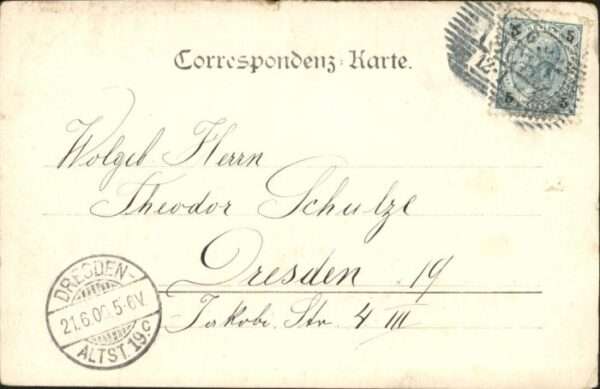 Correspondenz-Karte.
5 5
5 5
12
Wolgeb Herrn
Theodor Schulze
Dresden 19
Jakobi Str. 4 III
DRESDEN-
21.6.00. 5-6V.
ALTST. 19.c